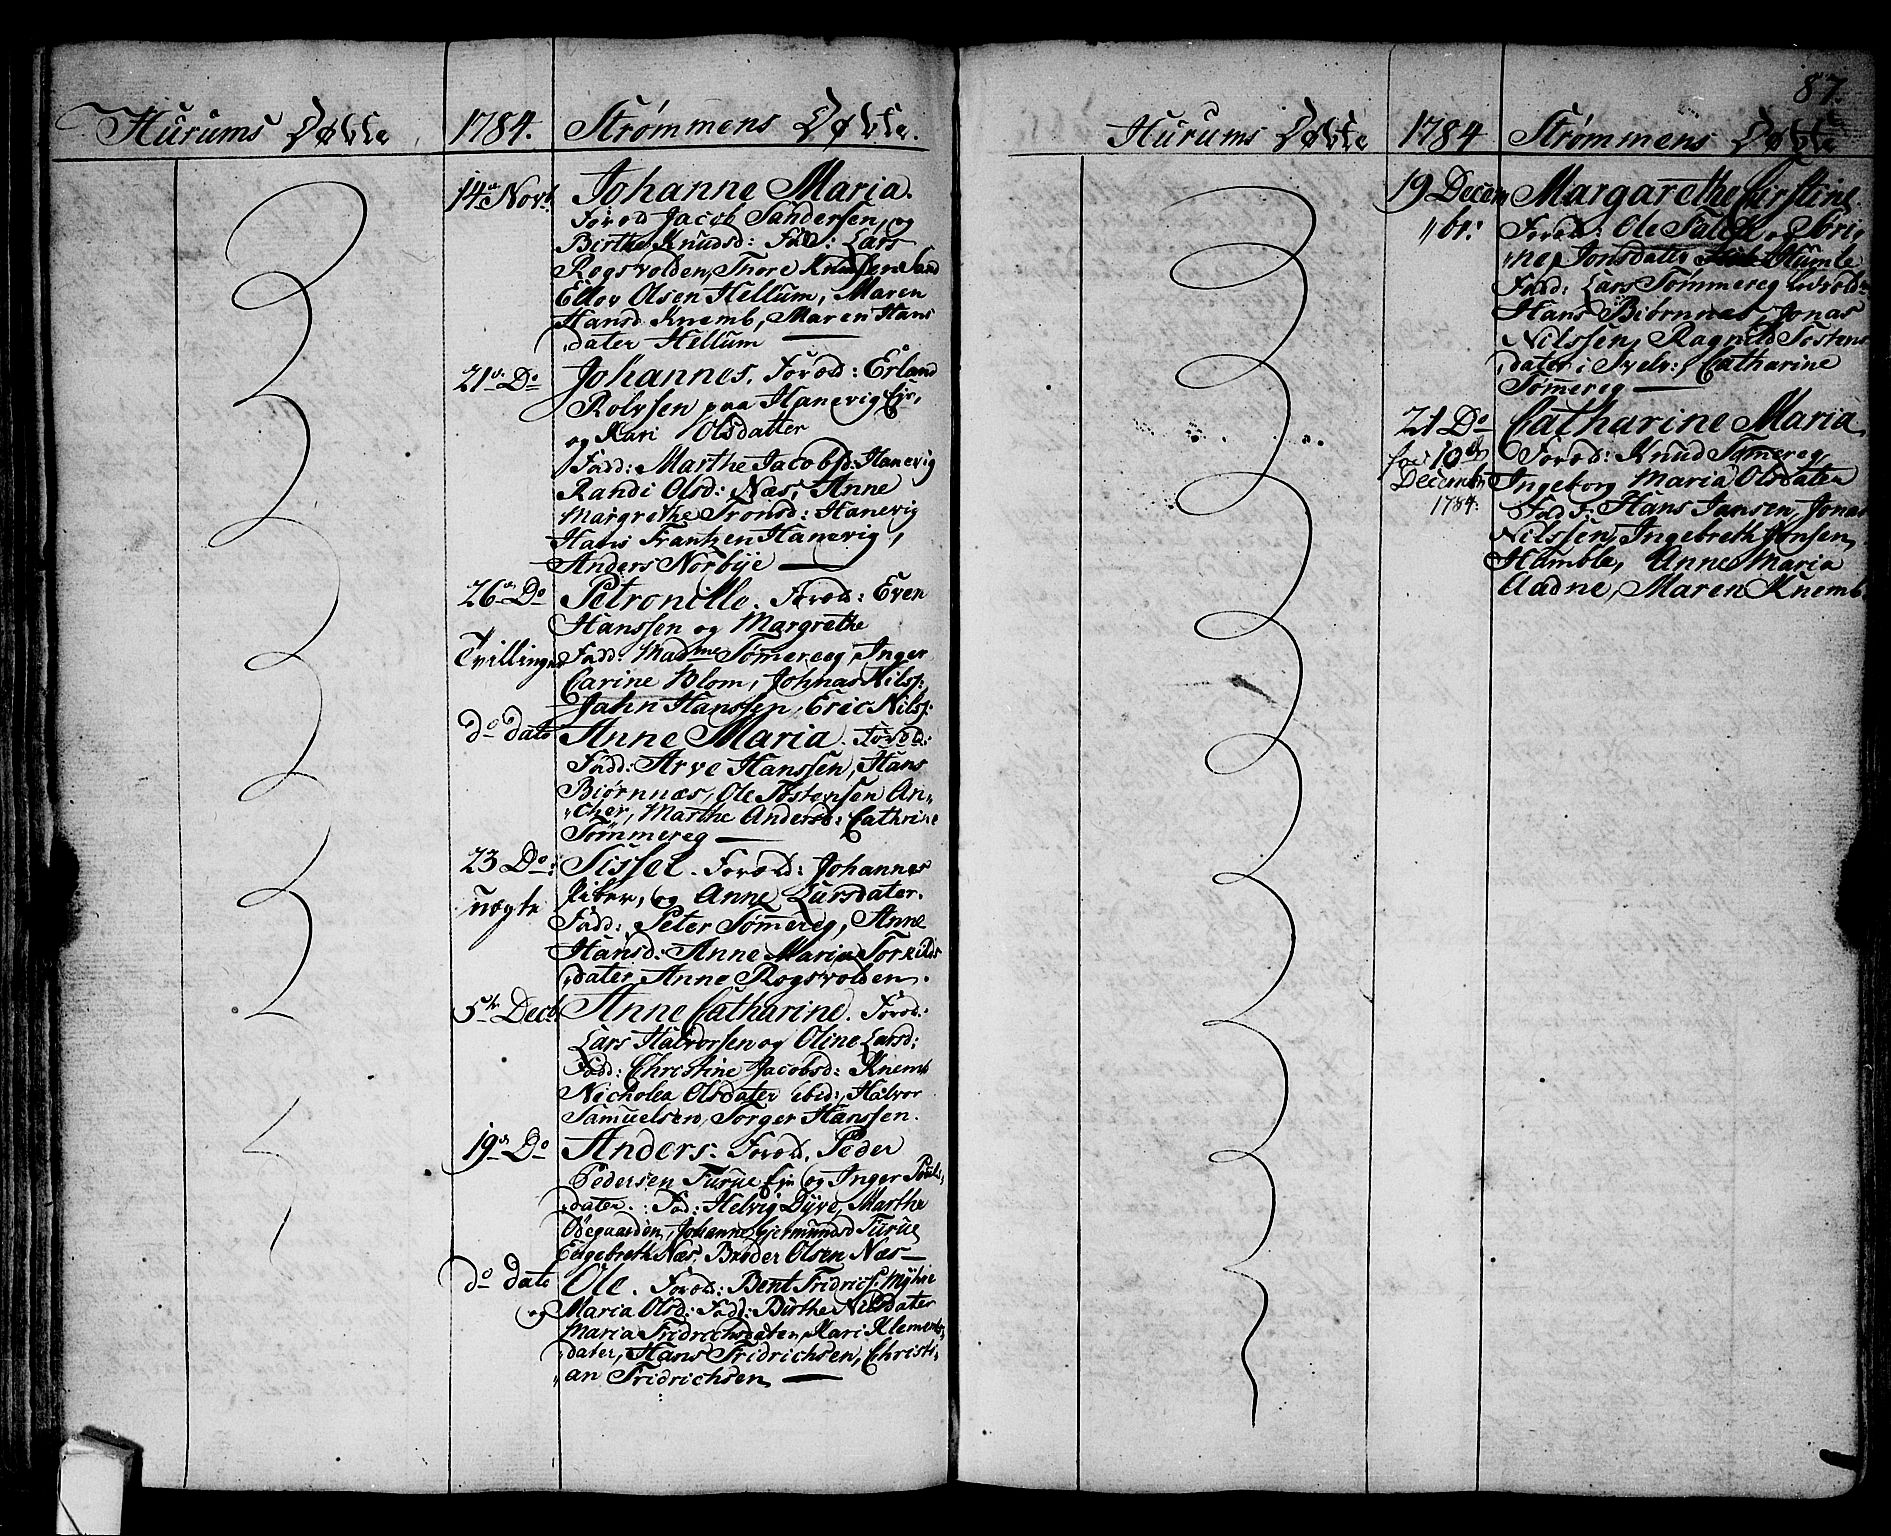 Hurums Døbte 1784. Strømmens Døbte.
14de Novb. Johanne Maria.
Foræld Jacob Sandersen, og
Birthe Knudsd: Fadd: Lars
Rogsvolden, Thore Knudsen Sand
Ellev Olsen Hellum, Maren
Hansd Knemb, Maren Hans
dater Hellum
21de Do Johannes. Foræld: Erland
Rolvsen paa Hanevig Eje,
og Kari Olsdatter
Fadd: Marthe Jacobsd: Hanevig
Randi Olsd: Næs, Anne
Margrethe Tronsd: Hanevig
Hans Frantzen Hanevig,
Anders Norbye
26de Do Petronille. Foræld: Even
Hanssen og Margrethe
Tvillinger Fadd: Madme Tømereg, Inger
Carine Blom, Johnas Nilss:
Jahn Hanssen, Eric Nilss:
do dato Anne Maria. Foræld:
Fadd: Arve Hanssen, Hans
Biørnnæs, Ole Tostensen An,,
,,cher, Marthe Andersd: Cathrine
Tømmereg
23 Do: Sissel. Foræld: Johannes
uægte Fiber, og Anne Larsdater.
Fadd: Peter Tømereg, Anne
Hansd: Anne Maria Torkilds
,,dater Anne Rogsvolden.
5te Decb. Anne Catharine. Foræld:
Lars Halvorsen og Oline Larsd:
Fadd: Christine Jacobsd: Knemb
Nicholea Olsdater ibid:, Halvor
Samuelsen, Torger Hanssen.
19de Do Anders. Foræld. Peder
Pedersen Furue Eje og Inger Pouls,,
,,dater. Fad: Helvig Dyve, Marthe
Ødegaarden, Johanne Gjermundsd Furue
Engebreth Næs, Broder Olsen Næs
do dato Ole. Foræld: Bent Fridrics: Myhre
og Maria Olsd: Fadd: Birthe Nilsdater
Maria Fridrichsdater, Kari Klemets,,
,,dater, Hans Fridrichsen, Christi,,
,,an Fridrichsen
87.
Hurums Døbte 1784 Strømmens Døbte
19 Decem Margarethe Cirstine.
,,br: Foræld: Ole Falck og Søri
,,ne Jonsdatter Humle
Fadd: Lars Tømmereg
Hans Biørnnæs, Jonas
Nilssen, Ragnild Tostens
,,dater i Svelv:, Catharine
Tømereg
21 Do Catharine Maria
10de Foræld: Knud Tømereg,
Decembr Ingeborg Maria Olsdater
1784. Fadd: Hans Jansen, Jonas
Nilssen, Ingebreth Jonsen
Humble, Anne Maria
Aadne, Maren Knemb.